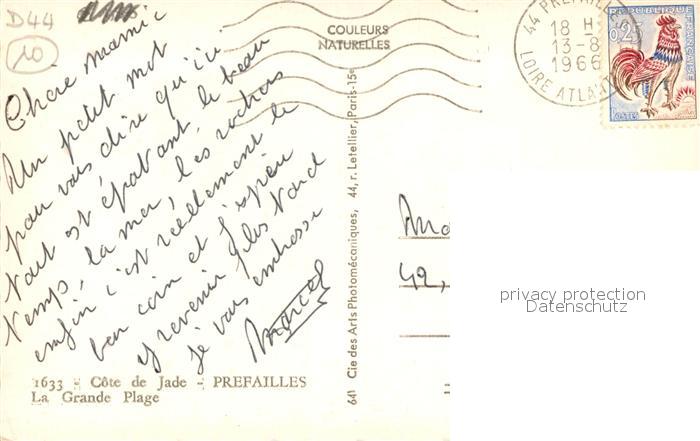 D44
10
COULEURS
NATURELLES
44 PREFAILLES
18 H
13-8
1966
LOIRE ATLANT
0,25
REPUBLIQUE FRANÇAISE
POSTES
Chère mamie
Un petit mot
pour vous dire qu'ici
tout est épatant, le beau
temps, la mer, les rochers
enfin c'est réellement le
bon coin et j'espère
y revenir plus tard
je vous embrasse
Marcel
64 Cie des Arts Photomécaniques, 44, r. Letellier, Paris-15e
42,
privacy protection
Datenschutz
1633 - Côte de Jade - PREFAILLES
La Grande Plage